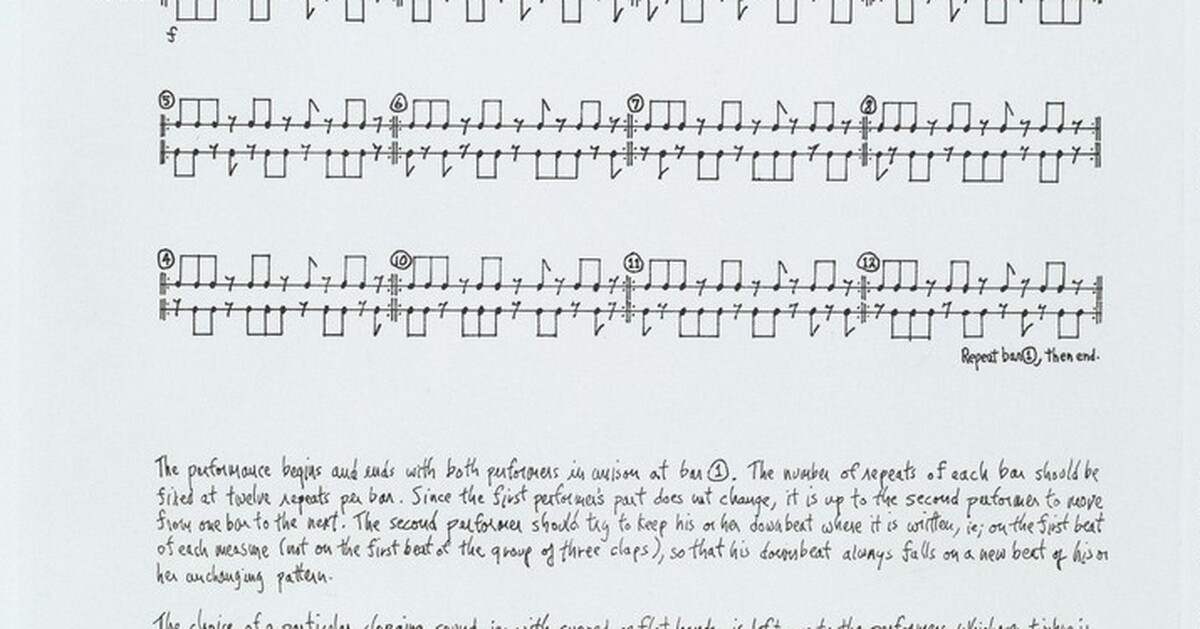 f
5 6 7 8
9 10 11 12
Repeat bar 1, then end.
The performance begins and ends with both performers in unison at bar 1. The number of repeats of each bar should be
fixed at twelve repeats per bar. Since the first performer's part does not change, it is up to the second performer to move
from one bar to the next. The second performer should try to keep his or her downbeat where it is written, ie; on the first beat
of each measure (not on the first beat of the group of three claps), so that his downbeat always falls on a new beat of his or
her unchanging pattern.
The choice of a particular clapping sound, ie; with cupped or flat hands, is left up to the performers. Whichever timbre is